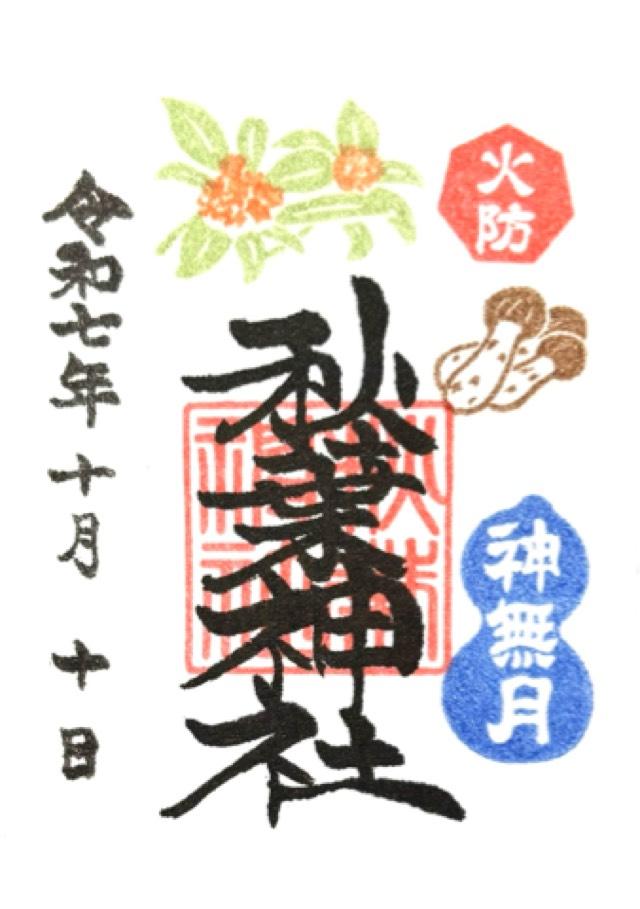 火防
神無月
秋葉神社
秋葉神社
令和七年 十月 十日